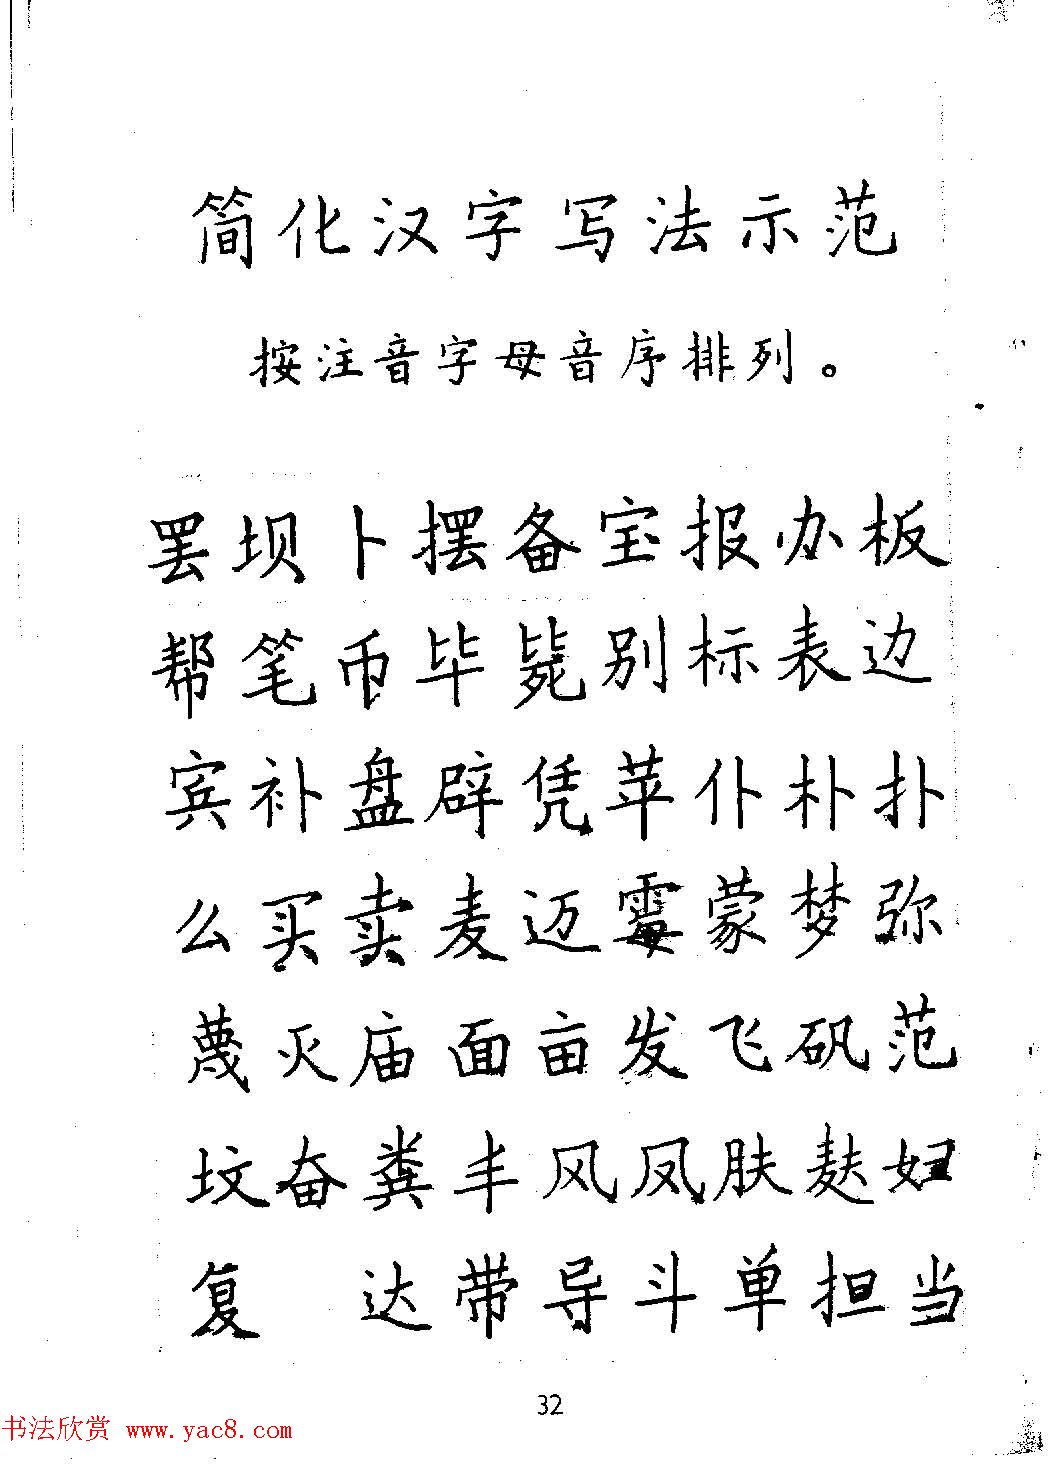 简化汉字写法示范
按注音字母音序排列。
罢坝卜摆备宝报办板
帮笔币毕毙别标表边
宾补盘辟凭苹仆朴扑
么买卖麦迈霉蒙梦弥
蔑灭庙面亩发飞矾范
坟奋粪丰风凤肤麸妇
复 达带导斗单担当
32
书法欣赏 www.yac8.com